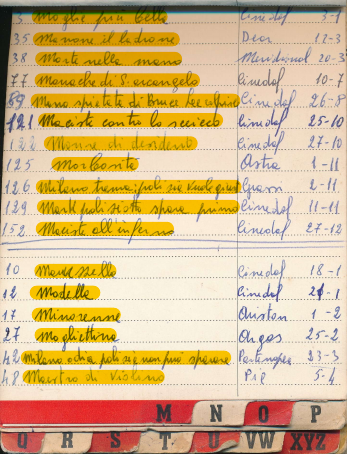 3 Moglie più bella Cinedaf 3-1
35 Manone il ladrone Dear 12-3
38 Morte nella mano Meridional 20-3
77 Monache di S. arcangelo Cinedaf 10-7
89 Mano spietata di Bruce Lee colpisce Cinedaf 26-8
121 Maciste contro lo sceicco Cinedaf 25-10
122 Morire di Cinedaf 27-10
125 Morbosità Astra 1-11
126 Milano trema: poli sa vuol giust 2-11
129 Mark poliziotto spara primo Cinedaf 11-11
152 Maciste all'inferno Cinedaf 27-12
10 Cinedaf 18-1
12 Modella Cinedaf 21-1
17 Minorenne Auston 1-2
27 Mogliettina Argos 25-2
42 Milano odia poli seg non può sparare Partenopea 23-3
48 Maestro di violino Pic 5-4
M N O P
Q R S T U VW XYZ